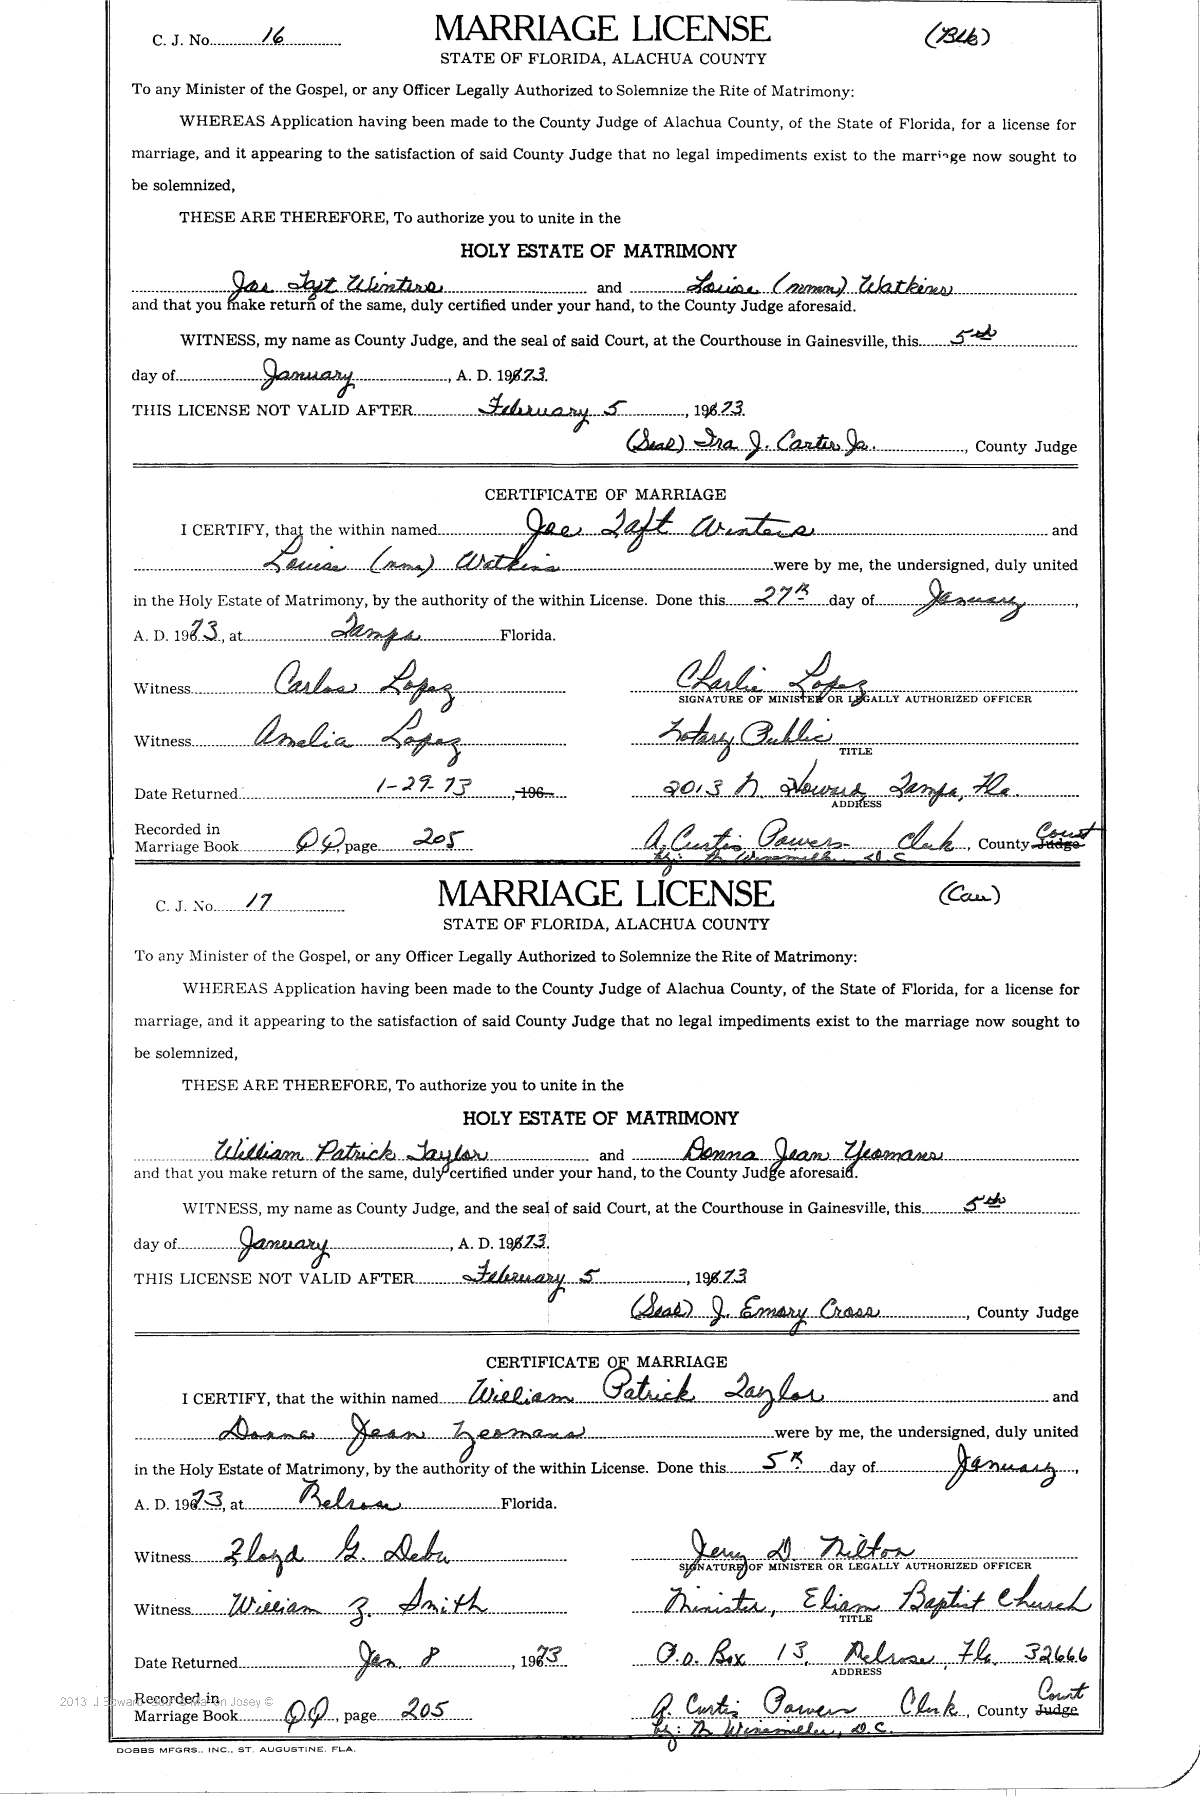 C. J. No. 16 MARRIAGE LICENSE (Blk)
STATE OF FLORIDA, ALACHUA COUNTY
To any Minister of the Gospel, or any Officer Legally Authorized to Solemnize the Rite of Matrimony:
WHEREAS Application having been made to the County Judge of Alachua County, of the State of Florida, for a license for
marriage, and it appearing to the satisfaction of said County Judge that no legal impediments exist to the marriage now sought to
be solemnized,
THESE ARE THEREFORE, To authorize you to unite in the
HOLY ESTATE OF MATRIMONY
Joe Taft Winters and Louise (nmn) Watkins
and that you make return of the same, duly certified under your hand, to the County Judge aforesaid.
WITNESS, my name as County Judge, and the seal of said Court, at the Courthouse in Gainesville, this 5th
day of January, A. D. 1973.
THIS LICENSE NOT VALID AFTER February 5, 1973.
(Seal) Ira J. Carter Jr., County Judge
CERTIFICATE OF MARRIAGE
I CERTIFY, that the within named Joe Taft Winters and
Louise (nmn) Watkins were by me, the undersigned, duly united
in the Holy Estate of Matrimony, by the authority of the within License. Done this 27th day of January,
A. D. 1973, at Tampa Florida.
Witness Carlos Lopez Charlie Lopez
SIGNATURE OF MINISTER OR LEGALLY AUTHORIZED OFFICER
Witness Amelia Lopez Notary Public
TITLE
Date Returned 1-29-73, 196 2013 N. Howard, Tampa, Fla.
ADDRESS
Recorded in Court
Marriage Book QQ page 205 A. Curtis Powers Clerk, County Judge
by: M Winemiller, D.C.
C. J. No. 17 MARRIAGE LICENSE (Cau)
STATE OF FLORIDA, ALACHUA COUNTY
To any Minister of the Gospel, or any Officer Legally Authorized to Solemnize the Rite of Matrimony:
WHEREAS Application having been made to the County Judge of Alachua County, of the State of Florida, for a license for
marriage, and it appearing to the satisfaction of said County Judge that no legal impediments exist to the marriage now sought to
be solemnized,
THESE ARE THEREFORE, To authorize you to unite in the
HOLY ESTATE OF MATRIMONY
William Patrick Taylor and Donna Jean Yeomans
and that you make return of the same, duly certified under your hand, to the County Judge aforesaid.
WITNESS, my name as County Judge, and the seal of said Court, at the Courthouse in Gainesville, this 5th
day of January, A. D. 1973.
THIS LICENSE NOT VALID AFTER February 5, 1973
(Seal) J. Emory Cross, County Judge
CERTIFICATE OF MARRIAGE
I CERTIFY, that the within named William Patrick Taylor and
Donna Jean Yeomans were by me, the undersigned, duly united
in the Holy Estate of Matrimony, by the authority of the within License. Done this 5th day of January,
A. D. 1973, at Melrose Florida.
Witness Floyd G. Jerry D. Nilton
SIGNATURE OF MINISTER OR LEGALLY AUTHORIZED OFFICER
Witness William Z. Smith Minister, Eliam Baptist Church
TITLE
Date Returned Jan 8, 1973 P.O. Box 13, Melrose, Fla. 32666
ADDRESS
Recorded in Court
Marriage Book QQ, page 205 A. Curtis Powers Clerk, County Judge
by: M Winemiller, D.C.
2013 J Edward Josey ©
DOBBS MFGRS., INC., ST. AUGUSTINE, FLA.